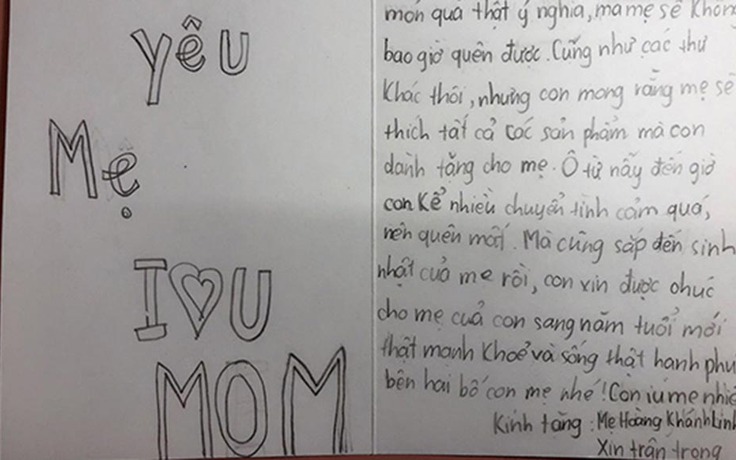 yêu
Mẹ
I♡U
MOM
món quà thật ý nghĩa, mà mẹ sẽ không
bao giờ quên được. Cũng như các thư
khác thôi, nhưng con mong rằng mẹ sẽ
thích tất cả các sản phẩm mà con
dành tặng cho mẹ. Ô từ nãy đến giờ
con kể nhiều chuyển tình cảm quá,
nên quên mất. Mà cũng sắp đến sinh
nhật của mẹ rồi, con xin được chúc
cho mẹ cuả con sang năm tuổi mới
thật mạnh khoẻ và sống thật hạnh phú
bên hai bố con mẹ nhé! Con iu mẹ nhiề
Kính tặng: Mẹ Hoàng Khánh Linh
Xin trân trọng